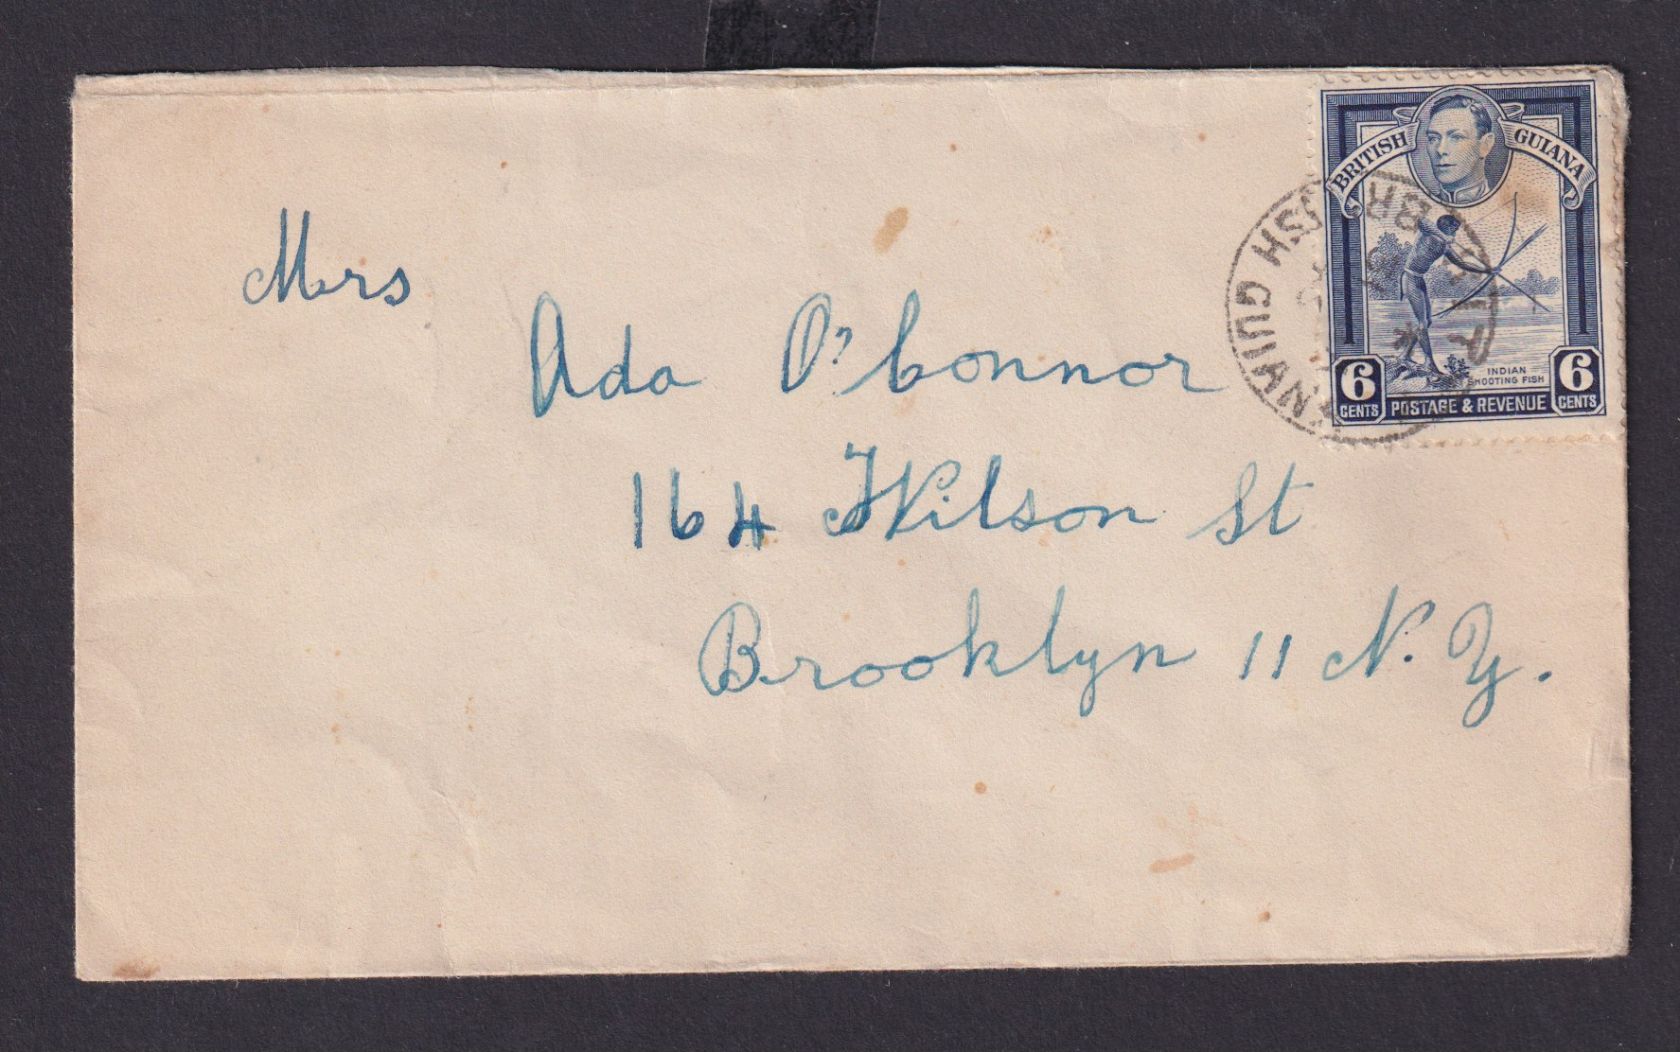 BRITISH GUIANA
INDIAN
SHOOTING FISH
6 CENTS POSTAGE & REVENUE 6 CENTS
GUIANA
Mrs
Ada O'Connor
164 Wilson St
Brooklyn 11 N.Y.